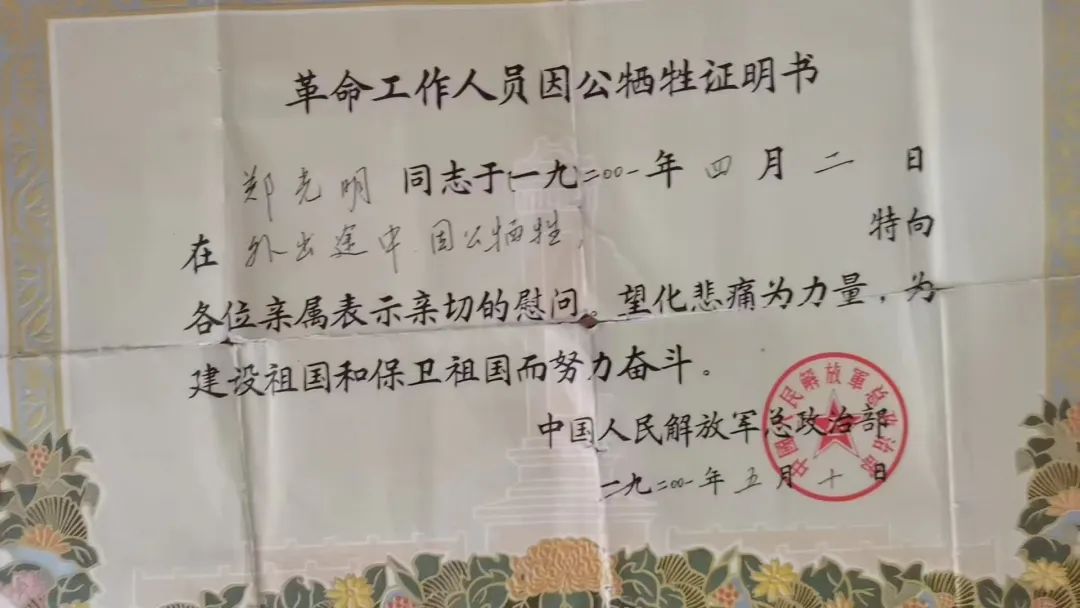 革命工作人员因公牺牲证明书
郑光明 同志于一九二〇〇一年 四 月 二 日
在 外出途中因公牺牲， 特向
各位亲属表示亲切的慰问。望化悲痛为力量，为
建设祖国和保卫祖国而努力奋斗。
中国人民解放军总政治部
一九二〇〇一年 五 月 十 日
中國人民解放軍总政治部